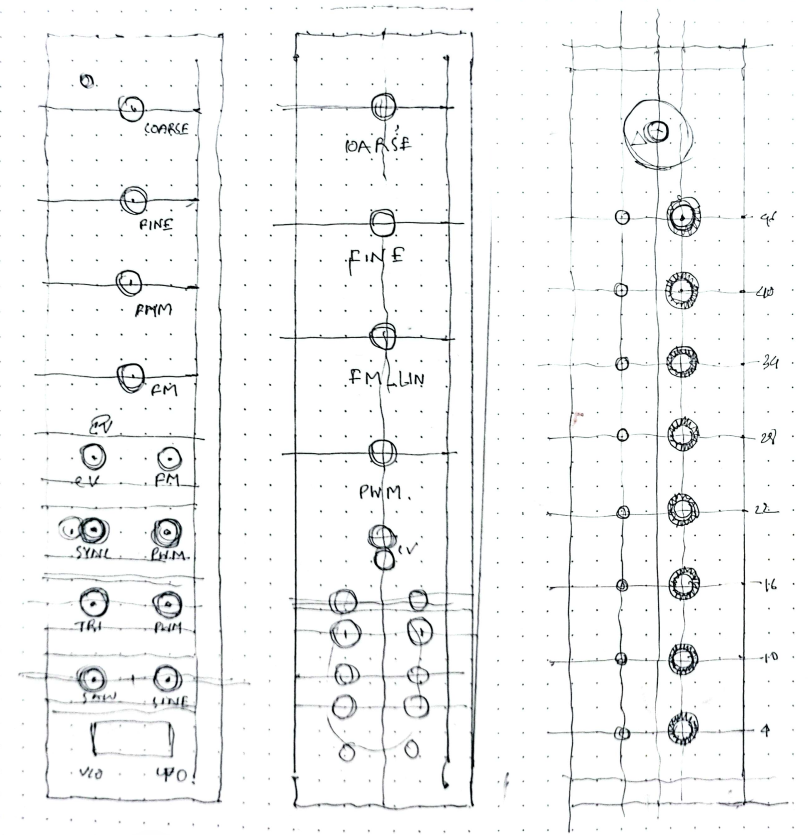 COARSE
FINE
PWM
FM
CV
CV FM
SYNC PWM
TRI PWM
SAW SINE
VCO LFO
COARSE
FINE
FM LIN
PWM.
CV
46
40
34
28
22
16
10
4